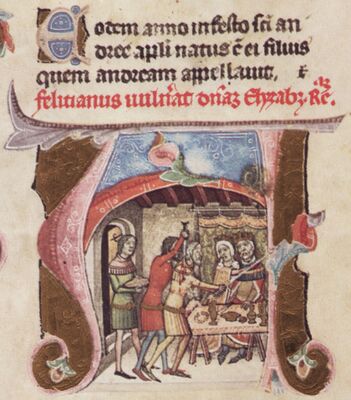 Eodem anno in festo sci an
dree apli natus ē ei filius
quem andream appellauit.
felitianus uulnāt dnāz Elyzabz Rē.